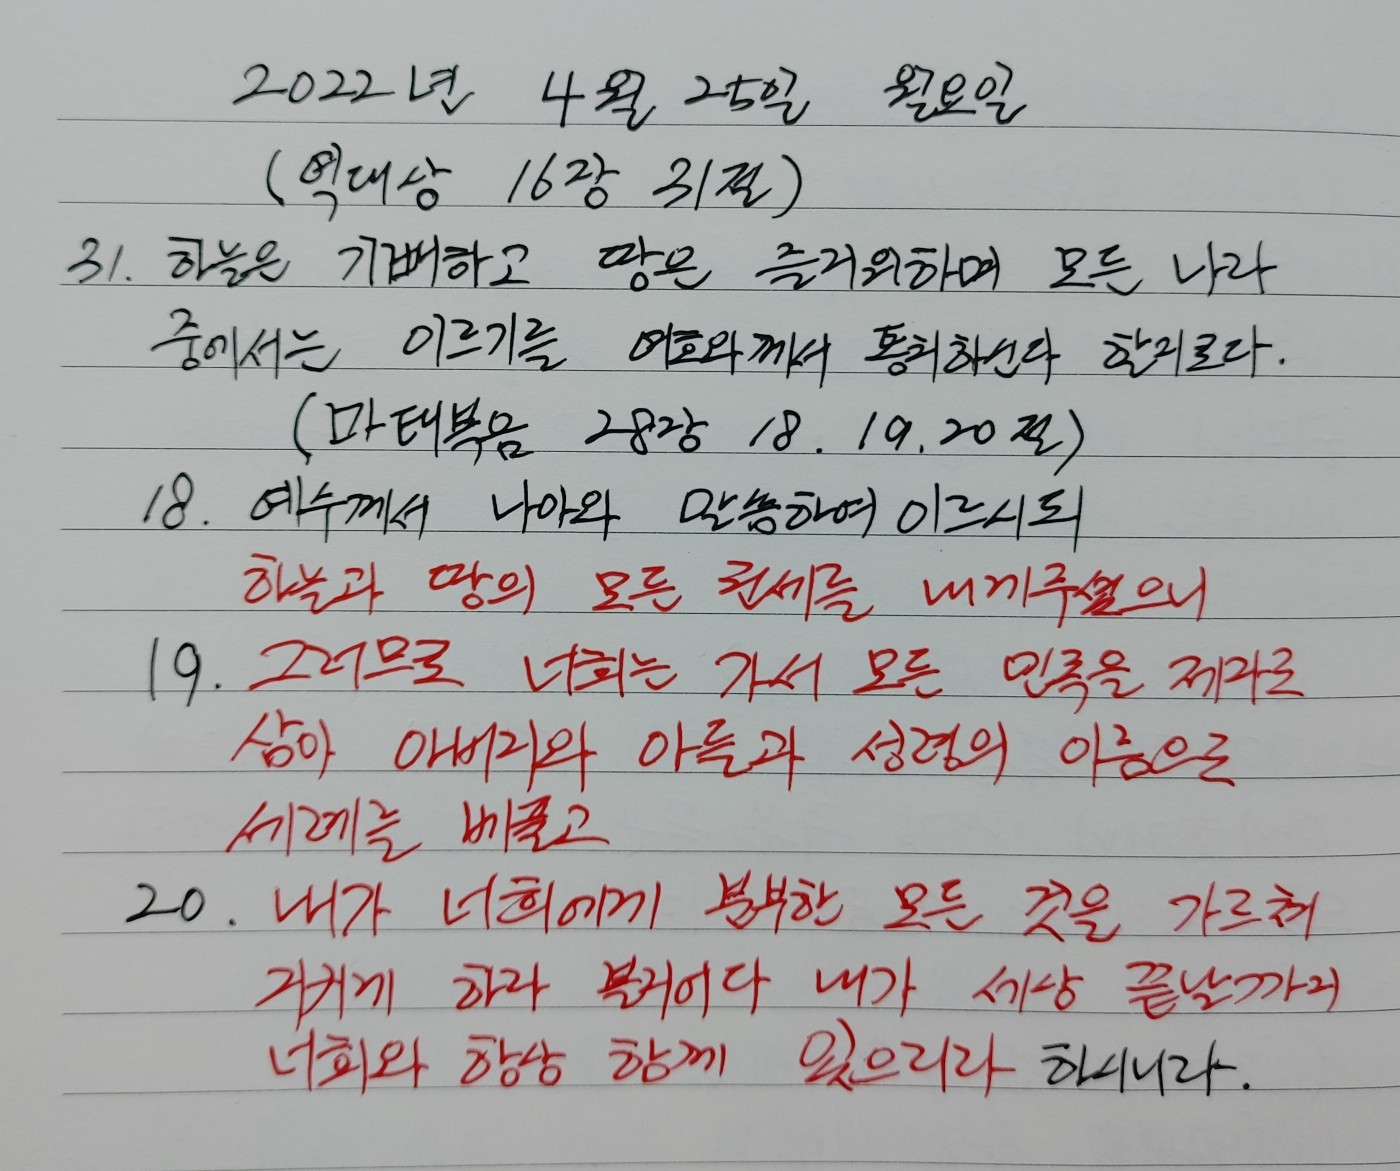 2022년 4월 25일 월요일
(역대상 16장 31절)
31. 하늘은 기뻐하고 땅은 즐거워하며 모든 나라
중에서는 이르기를 여호와께서 통치하신다 할지로다.
(마태복음 28장 18. 19. 20절)
18. 예수께서 나아와 말씀하여 이르시되
하늘과 땅의 모든 권세를 내게주셨으니
19. 그러므로 너희는 가서 모든 민족을 제자로
삼아 아버지와 아들과 성령의 이름으로
세례를 베풀고
20. 내가 너희에게 분부한 모든 것을 가르쳐
지키게 하라 볼지어다 내가 세상 끝날까지
너희와 항상 함께 있으리라 하시니라.